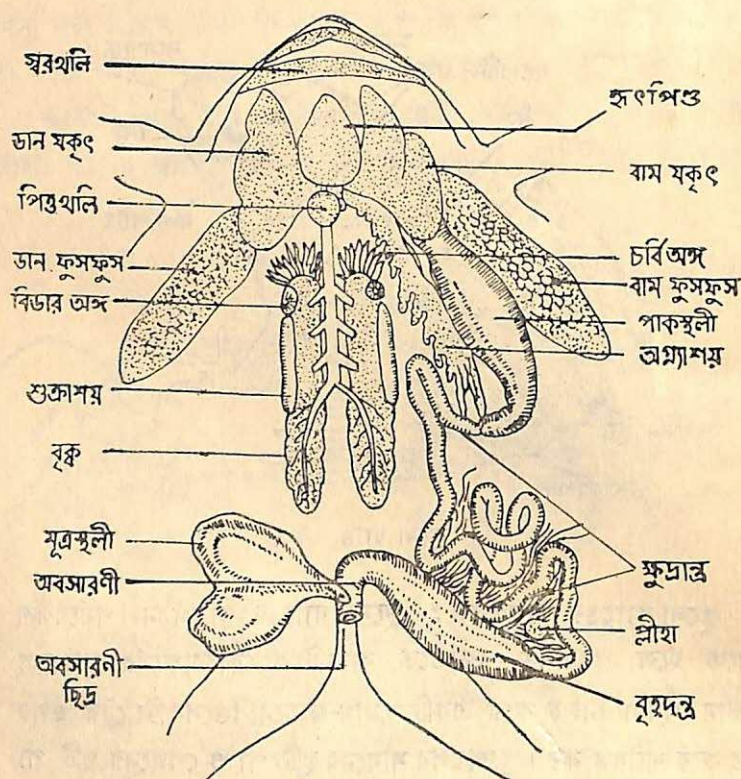 স্বরথলি
ডান যকৃৎ
পিত্তথলি
ডান ফুসফুস
বিডার অঙ্গ
শুক্রাশয়
বৃক্ক
মূত্রস্থলী
অবসারণী
অবসারণী
ছিদ্র
হৃৎপিণ্ড
বাম যকৃৎ
চর্বিঅঙ্গ
বাম ফুসফুস
পাকস্থলী
অগ্ন্যাশয়
ক্ষুদ্রান্ত্র
প্লীহা
বৃহদন্ত্র